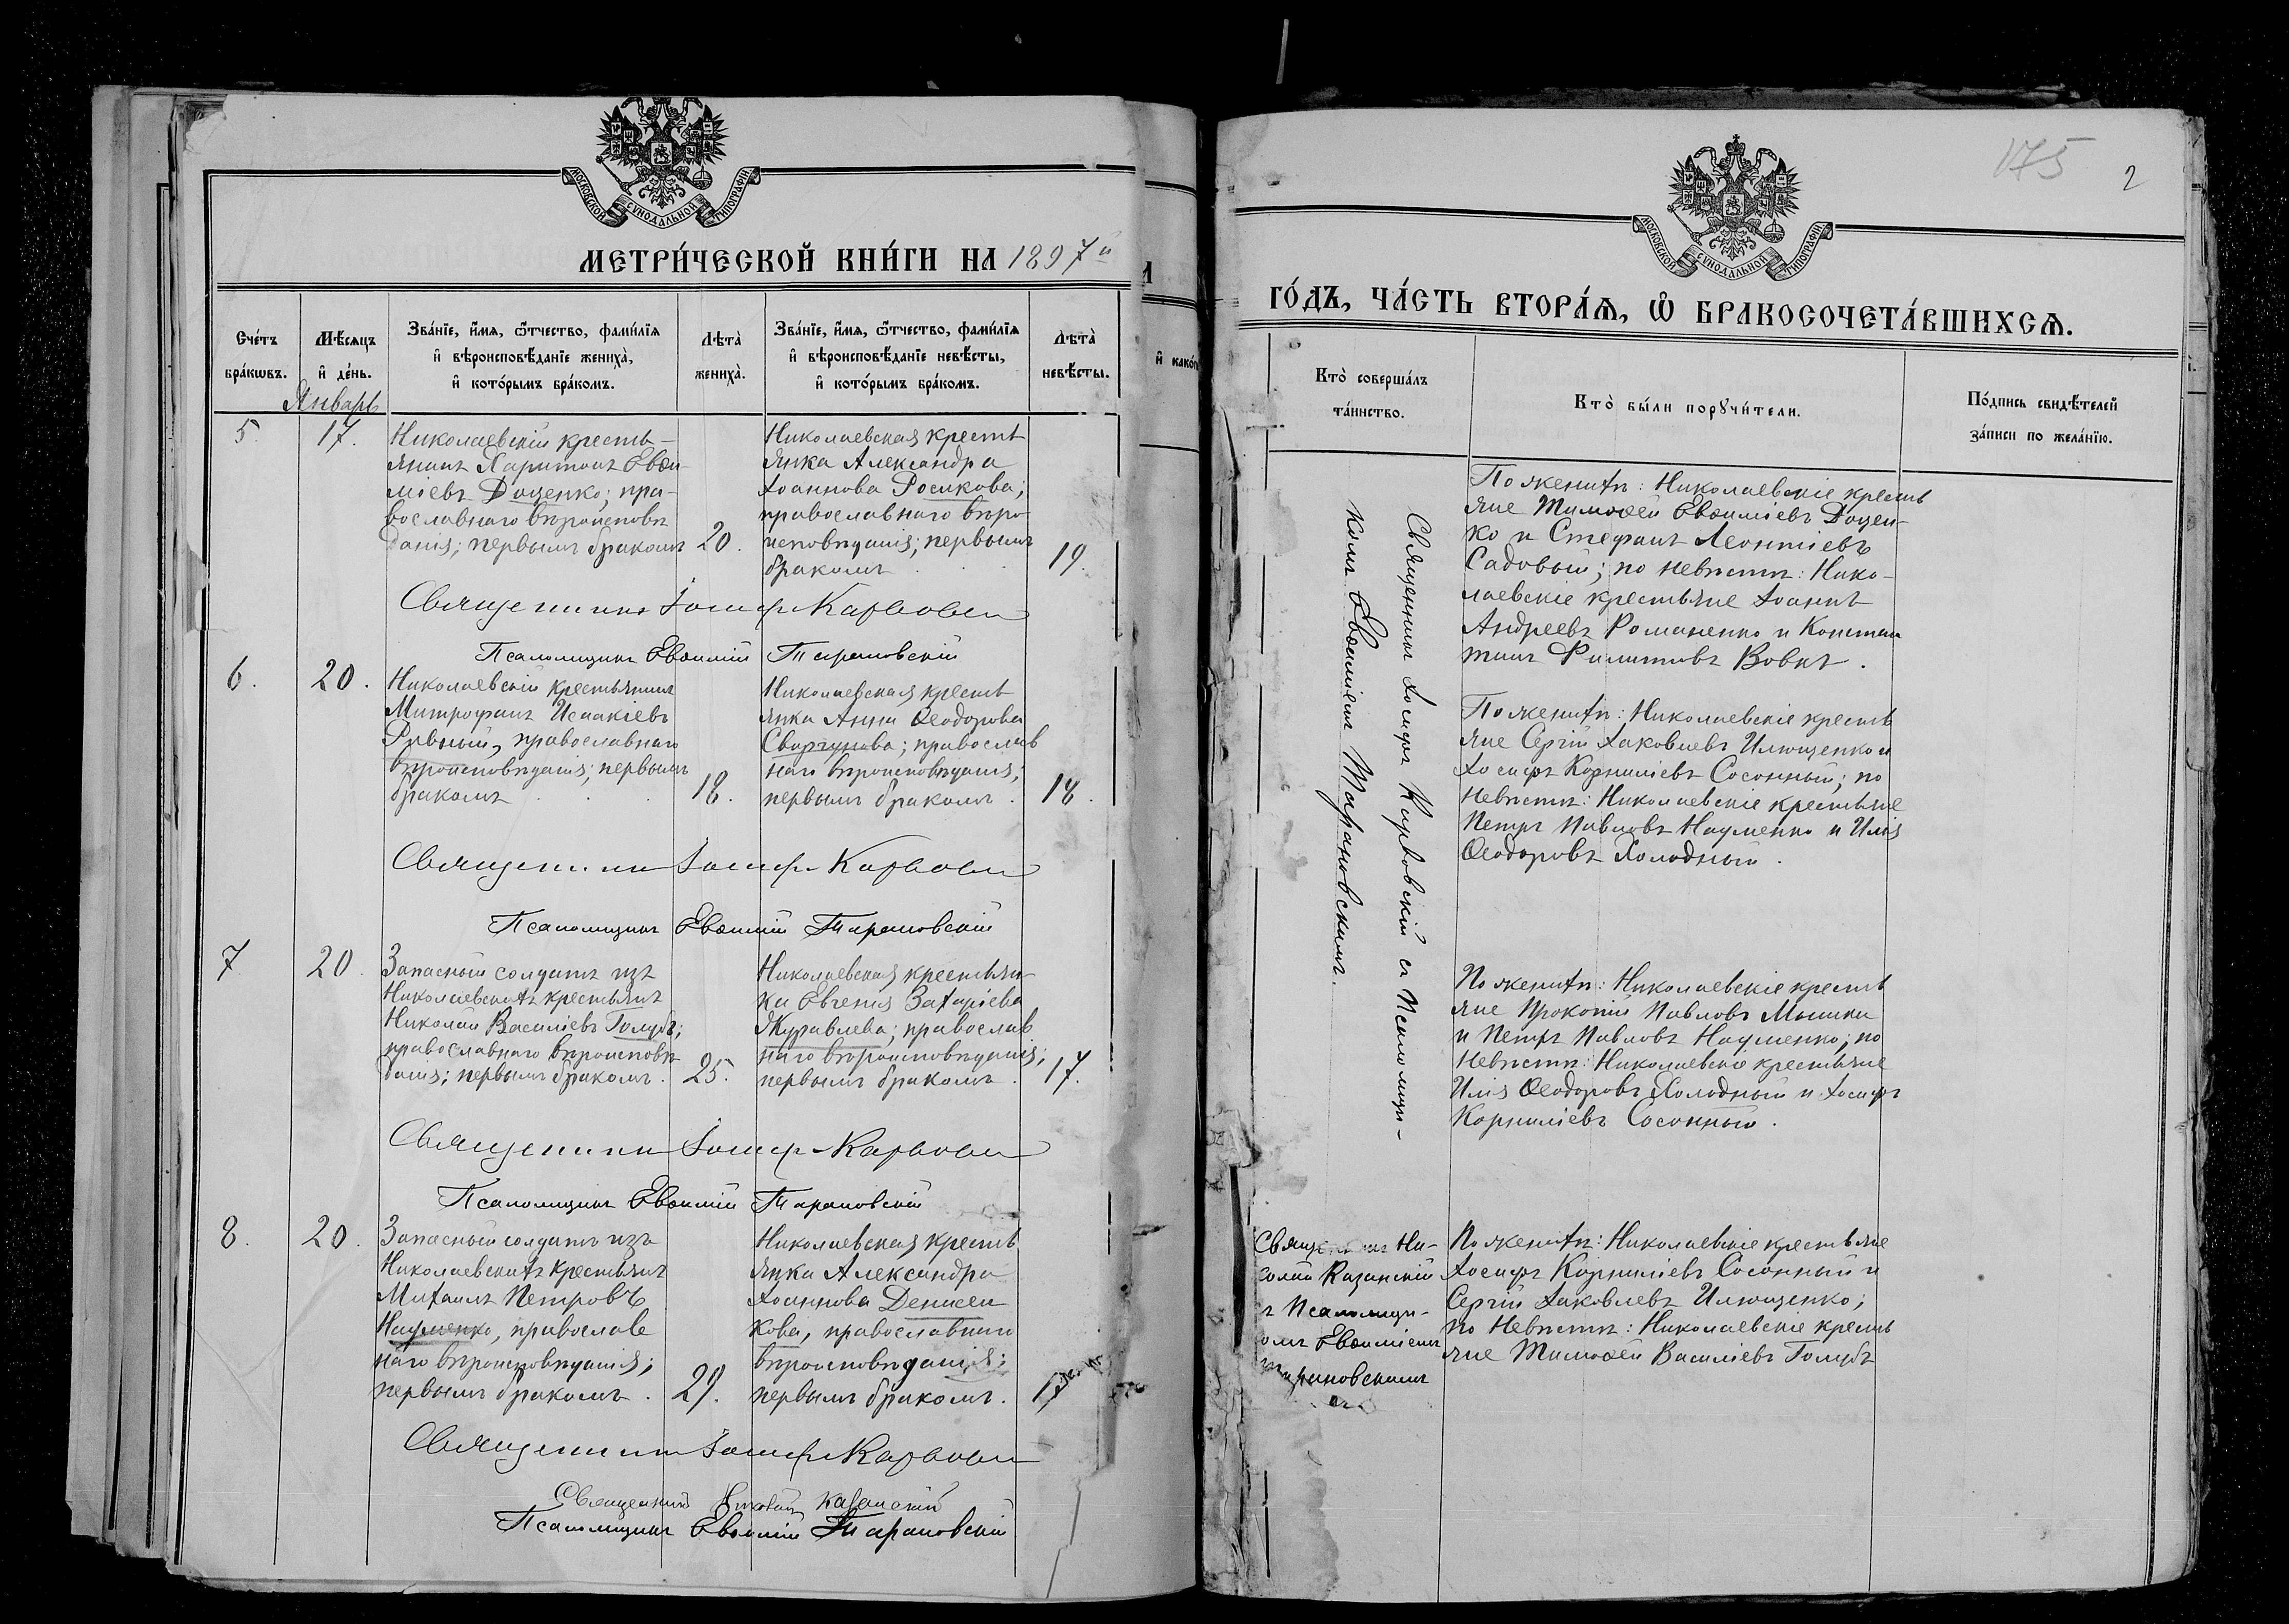 МОСКОВСКОЙ СУНОДАЛЬНОЙ ТИПОГРАФІИ
МЕТРИ́ЧЕСКОЙ КНИ́ГИ НА 1897й
Сче́тъ бра́кѡвъ.
Мѣ́сяцъ и҆ де́нь.
Январь
Зва́нїе, и҆́мя, ѻ҆́тчество, фами́лїя и҆ вѣроисповѣ́данїе жениха̀, и҆ кото́рымъ бра́комъ.
Лѣта̀ жениха̀.
Зва́нїе, и҆́мя, ѻ҆́тчество, фами́лїя и҆ вѣроисповѣ́данїе невѣ́сты, и҆ кото́рымъ бра́комъ.
Лѣта̀ невѣ́сты.
5.
17.
Николаевскій кресть-
янинъ Харитонъ Евѳи-
міевъ Доценко; пра-
вославнаго вѣроисповѣ
данія; первымъ бракомъ
20.
Николаевская кресть
янка Александра
Іоаннова Росикова;
православнаго вѣро-
исповѣданія; первымъ
бракомъ
19.
Священникъ Іосифъ Карвовскій
Псаломщикъ Евѳимій Тарановскій
6.
20.
Николаевскій крестьянинъ
Митрофанъ Исаакіевъ
Рывный, православнаго
вѣроисповѣданія; первымъ
бракомъ
18.
Николаевская кресть
янка Анна Ѳеодорова
Сворчунова; православ
наго вѣроисповѣданія;
первымъ бракомъ.
18.
Священникъ Іосифъ Карвовскій
Псаломщикъ Евѳимій Тарановскій
7
20.
Запасный солдатъ изъ
Николаевскихъ крестьянъ
Николай Василіевъ Голубъ;
православнаго вѣроисповѣ
данія; первымъ бракомъ.
25.
Николаевская крестьян-
ка Евгенія Захаріева
Журавлева; православ
наго вѣроисповѣданія;
первымъ бракомъ.
17.
Священникъ Іосифъ Карвовскій
Псаломщикъ Евѳимій Тарановскій
8.
20.
Запасный солдатъ изъ
Николаевскихъ крестьянъ
Михаилъ Петровъ
Науменко, православ
наго вѣроисповѣданія;
первымъ бракомъ.
29.
Николаевская кресть
янка Александра
Іоаннова Денисен
кова, православнаго
вѣроисповѣданія;
первымъ бракомъ.
17
Священникъ Іосифъ Карвовскій
Священникъ Николай Казанскій
Псаломщикъ Евѳимій Тарановскій
175
2
МОСКОВСКОЙ СУНОДАЛЬНОЙ ТИПОГРАФІИ
ГО́ДЪ, ЧА́СТЬ ВТОРА́Ѧ, Ѽ БРАКОСОЧЕТА́ВШИХСѦ.
Кто̀ соверша́лъ та́инство.
Кто̀ бы́ли порꙋчи́тели.
По́дпись свидѣ́телей за́писи по жела́нїю.
Священникъ Іосифъ Карвовскій съ Псаломщи-
комъ Евѳиміемъ Тарановскимъ.
По женихѣ: Николаевскіе кресть
яне Тимоѳей Евѳиміевъ Доцен-
ко и Стефанъ Леонтіевъ
Садовый; по невѣстѣ: Нико-
лаевскіе крестьяне Іоаннъ
Андреевъ Романенко и Констан
тинъ Филиповъ Вовкъ.
По женихѣ: Николаевскіе кресть
яне Сергій Іаковлевъ Илющенко и
Іосифъ Корниліевъ Сосонный; по
невѣстѣ: Николаевскіе крестьяне
Петръ Павловъ Науменко и Илія
Ѳеодоровъ Холодный.
По женихѣ: Николаевскіе кресть
яне Прокопій Павловъ Мышка
и Петръ Павловъ Науменко; по
невѣстѣ: Николаевскіе крестьяне
Илія Ѳеодоровъ Холодный и Іосифъ
Корниліевъ Сосонный.
Священникъ Ни-
колай Казанскій
съ Псаломщи-
комъ Евѳиміемъ
Тарановскимъ
По женихѣ: Николаевскіе крестьяне
Іосифъ Корниліевъ Сосонный и
Сергій Іаковлевъ Илющенко;
по невѣстѣ: Николаевскіе кресть
яне Тимоѳей Василіевъ Голубъ